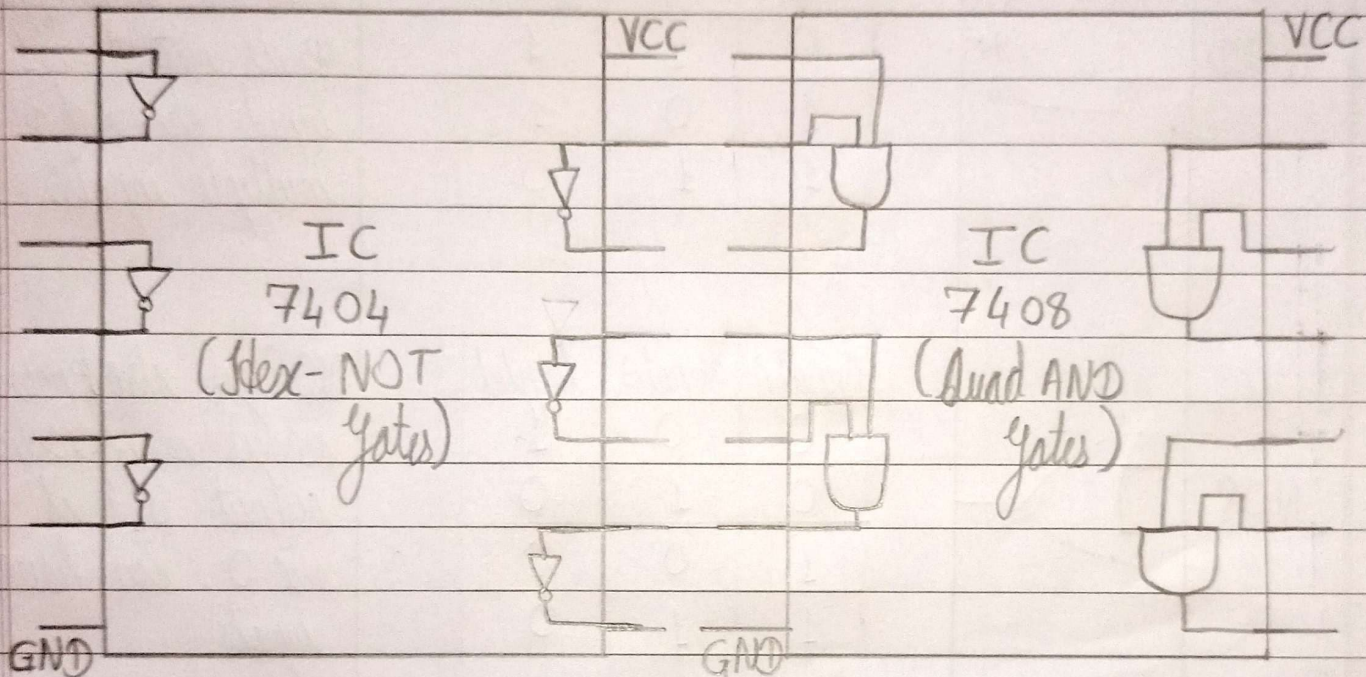 VCC
IC
7404
(Hex-NOT
gates)
GND
VCC
IC
7408
(Quad AND
gates)
GND